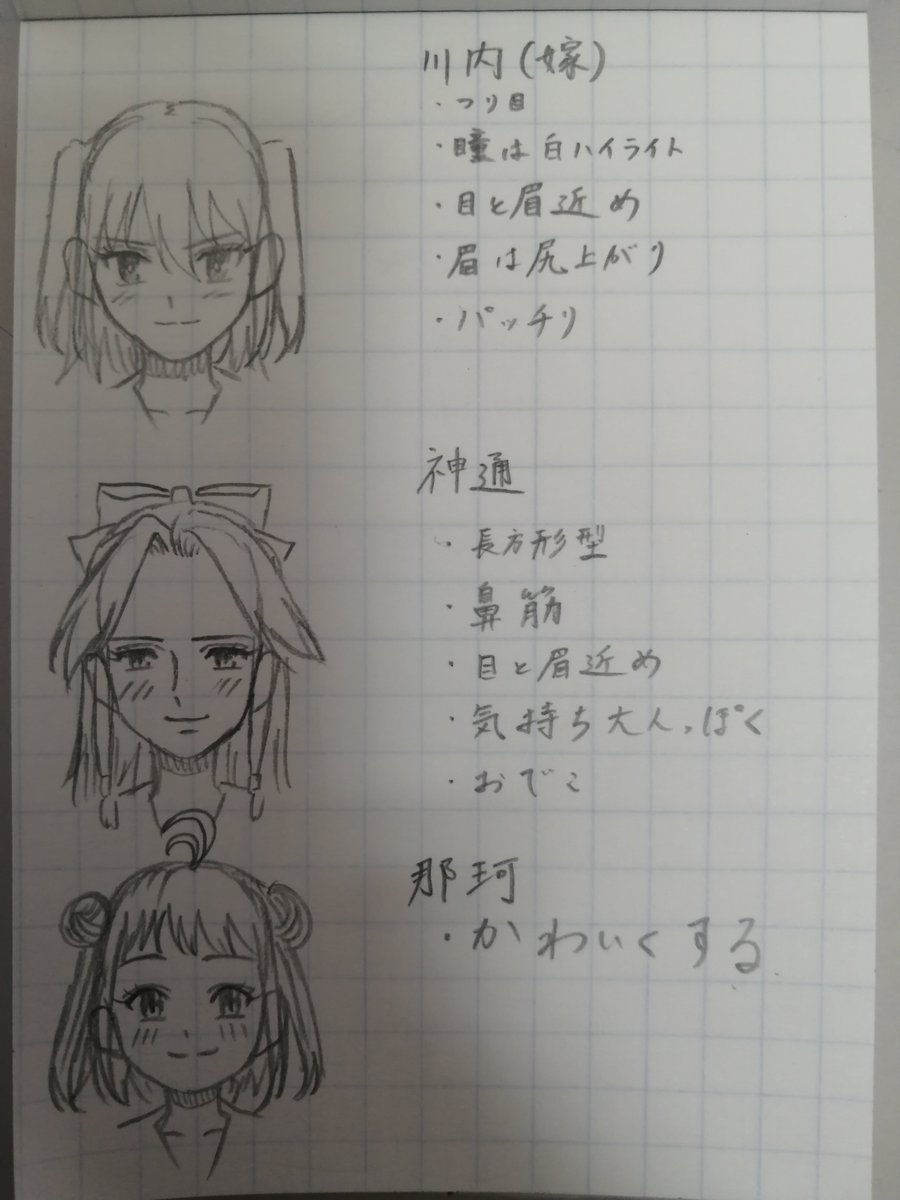 川内(嫁)
・つり目
・瞳は白ハイライト
・目と眉近め
・眉は尻上がり
・パッチリ
神通
・長方形型
・鼻筋
・目と眉近め
・気持ち大人っぽく
・おでこ
那珂
・かわいくする